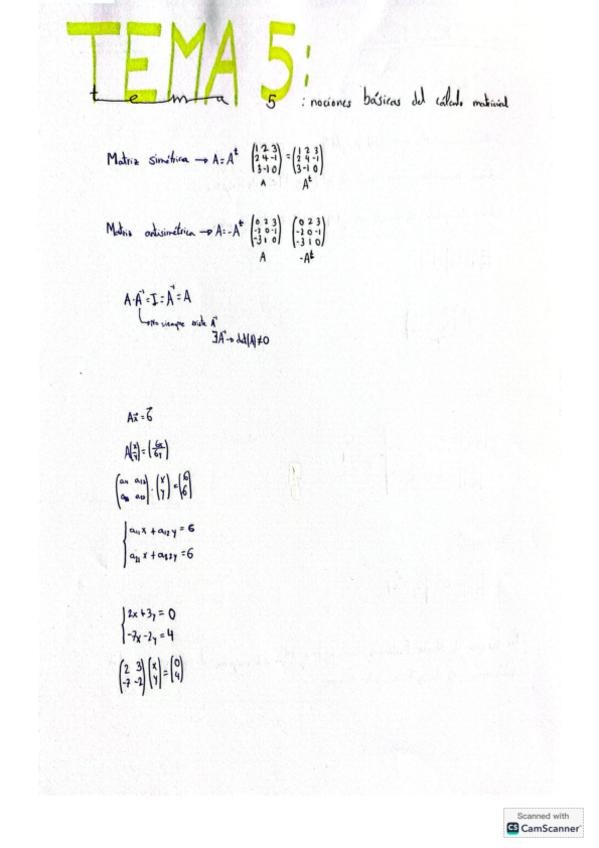 TEMA 5:
tema 5: nociones básicas del cálculo matricial
Matriz simétrica → A=A^t (1 2 3; 2 4 -1; 3 -1 0) = (1 2 3; 2 4 -1; 3 -1 0)
A A^t
Matriz antisimétrica → A=-A^t (0 2 3; -2 0 -1; -3 1 0) (0 2 3; -2 0 -1; -3 1 0)
A -A^t
A·A^-1=I=A^-1=A
No siempre existe A^-1
∃A^-1→det(A)≠0
Ax=6
A(x; y)=(6x; 6y)
(a11 a12; a21 a22)·(x; y)=(6; 6)
a11x+a12y=6
a21x+a22y=6
2x+3y=0
-7x-2y=4
(2 3; -7 -2)(x; y)=(0; 4)
Scanned with
CS CamScanner